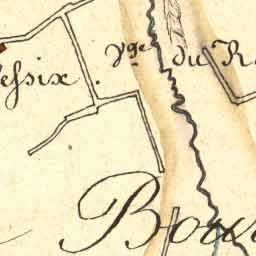 essix. Vge du R
Bou